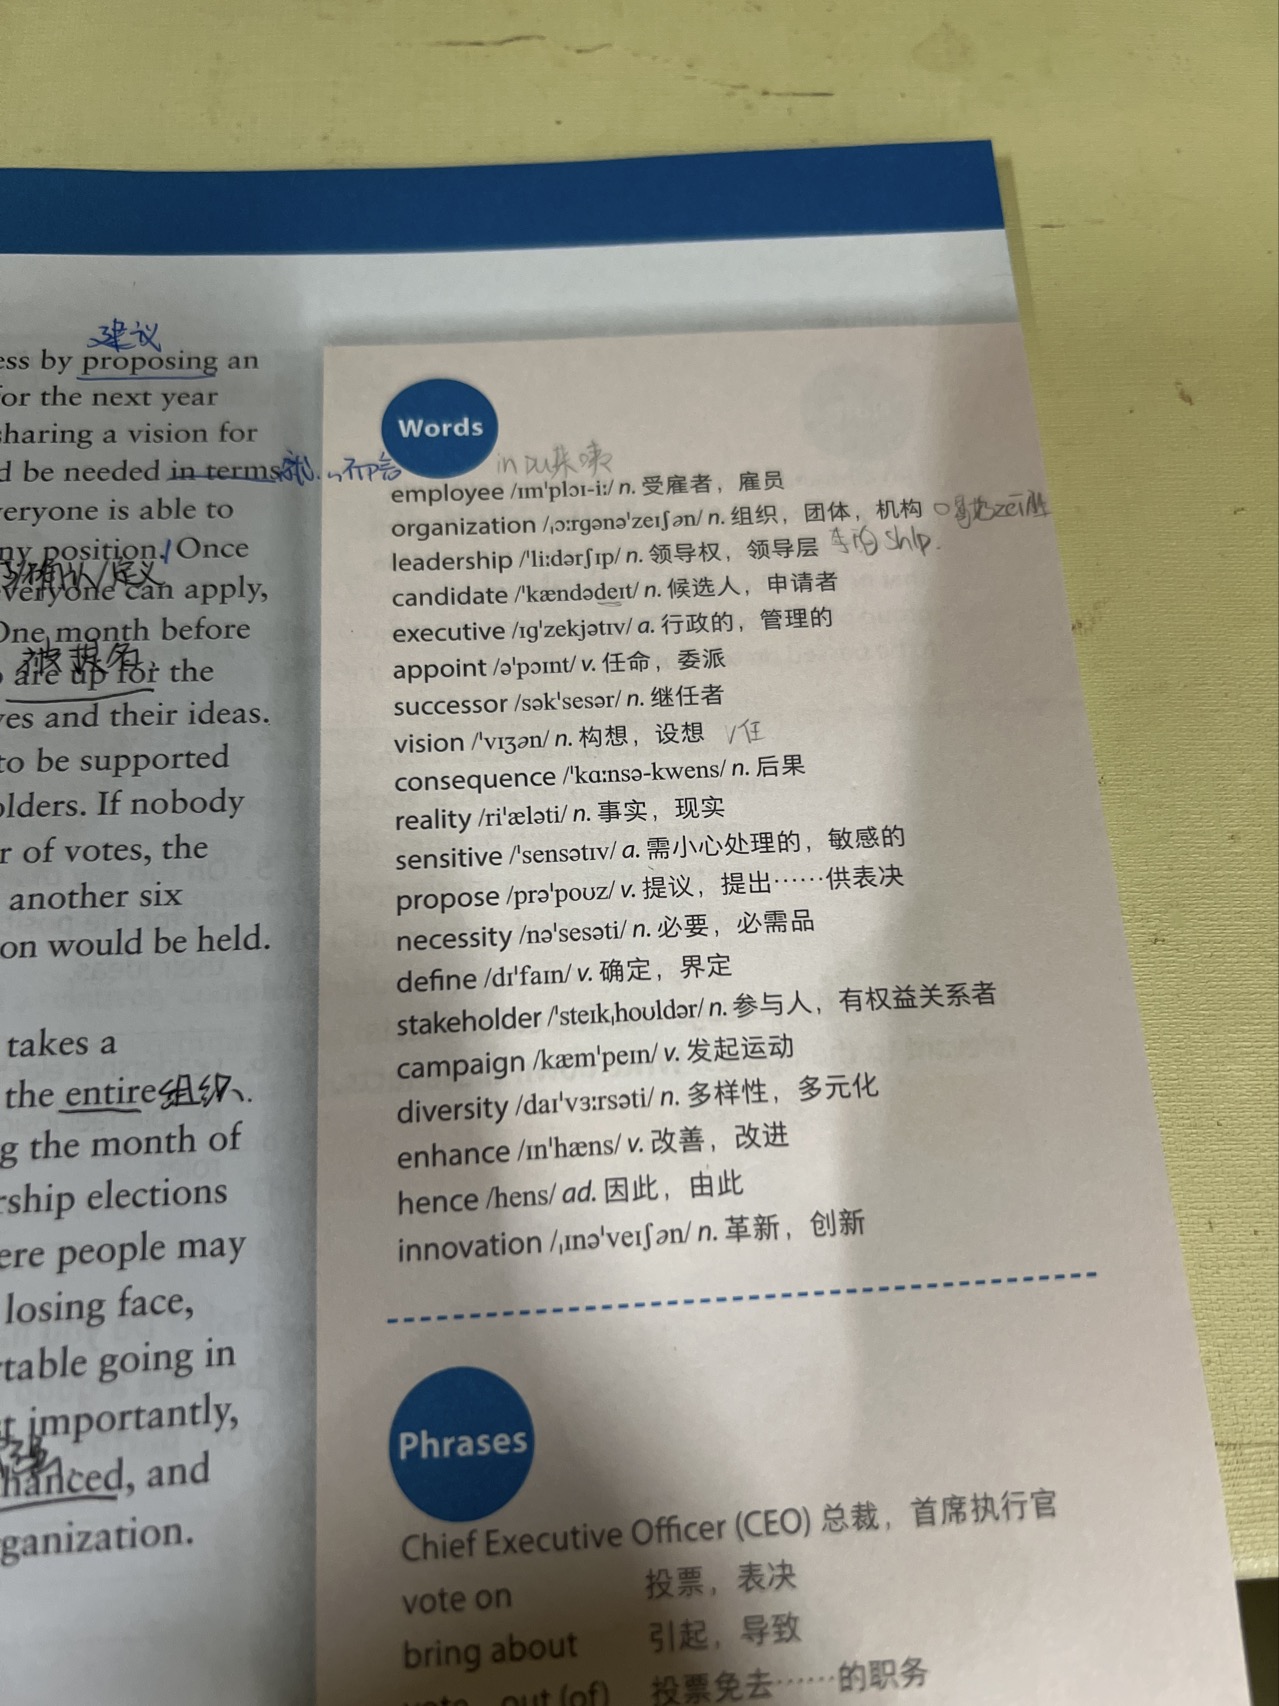 建议
ess by proposing an
or the next year
sharing a vision for
d be needed in terms
veryone is able to
ny position. Once
确认/定义
everyone can apply,
One month before
被提名
are up for the
ves and their ideas.
to be supported
olders. If nobody
r of votes, the
another six
on would be held.
takes a
the entire组织.
g the month of
rship elections
ere people may
losing face,
rtable going in
t importantly,
hanced, and
ganization.
Words
employee /ɪmˈplɔɪ-iː/ n. 受雇者，雇员
organization /ˌɔːrgənəˈzeɪʃən/ n. 组织，团体，机构
leadership /ˈliːdərʃɪp/ n. 领导权，领导层 ship.
candidate /ˈkændədeɪt/ n. 候选人，申请者
executive /ɪgˈzekjətɪv/ a. 行政的，管理的
appoint /əˈpɔɪnt/ v. 任命，委派
successor /səkˈsesər/ n. 继任者
vision /ˈvɪʒən/ n. 构想，设想
consequence /ˈkɑːnsə-kwens/ n. 后果
reality /riˈæləti/ n. 事实，现实
sensitive /ˈsensətɪv/ a. 需小心处理的，敏感的
propose /prəˈpoʊz/ v. 提议，提出……供表决
necessity /nəˈsesəti/ n. 必要，必需品
define /dɪˈfaɪn/ v. 确定，界定
stakeholder /ˈsteɪkˌhoʊldər/ n. 参与人，有权益关系者
campaign /kæmˈpeɪn/ v. 发起运动
diversity /daɪˈvɜːrsəti/ n. 多样性，多元化
enhance /ɪnˈhæns/ v. 改善，改进
hence /hens/ ad. 因此，由此
innovation /ˌɪnəˈveɪʃən/ n. 革新，创新
Phrases
Chief Executive Officer (CEO) 总裁，首席执行官
vote on 投票，表决
bring about 引起，导致
vote...out (of) 投票免去……的职务